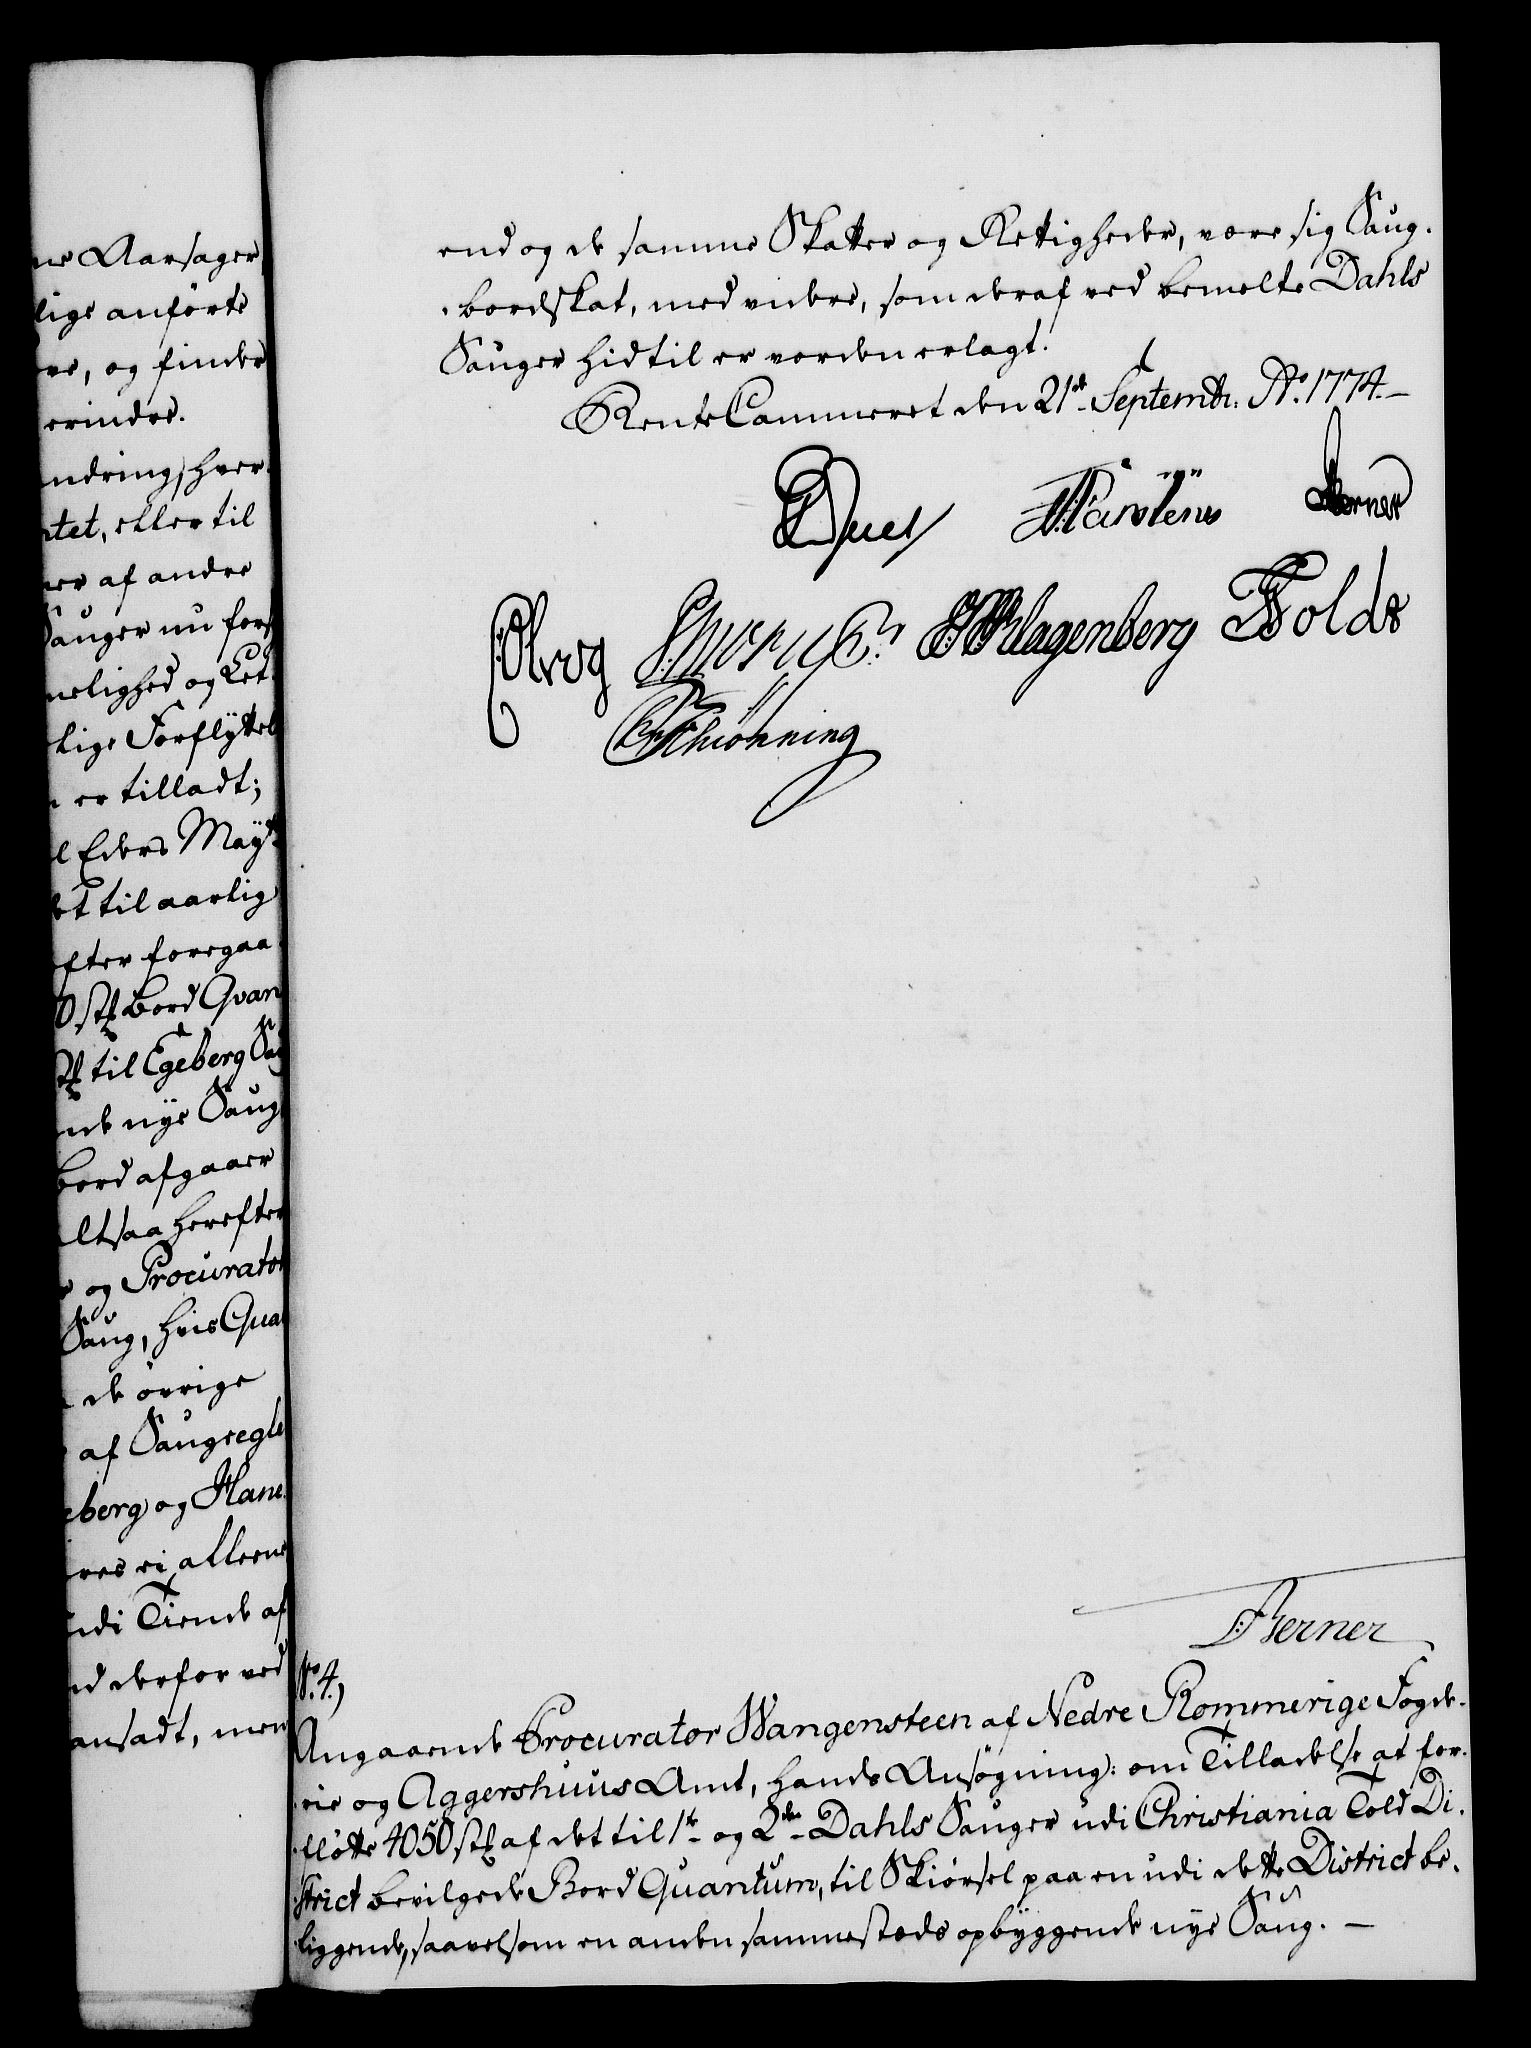 ne Aarsager
lige anførte
re, og finder
erindre.
ndring, hver
tet, eller til
res af andre
Sauger nu for
nelighed og Let
lige Forflyttel
er tilladt;
l Eders Mayts
et til aarlig
efter foregaa
0 stk bord Qvan
stk til Egeberg Sau
nde nye Saug
bord afgaaer
altsaa herefter
og Procurator
Saug, hvis Qua
de øvrige
af Saugregle
eberg og Hane
res ei alleene
udi Tiende af
nd derfor ved
ansadt, men
end og de samme Skatter og Rettigheder, være sig Saug-
bordskat, med videre, som deraf ved bemelte Dahls
Sauger hidtil er vorden erlagt.
Rente Cammeret den 21de Septembr. Ao. 1774.
Juel Berner
Klagenberg Wolds
Schiønning
Berner
No. 4.)
Angaaende Procurator Wangensteen af Nedre Rommerige Fogde-
rie og Aggershuus Amt, hands Ansøgning: om Tilladelse at for-
fløtte 4050 stk af det til 1te og 2den Dahls Sauger udi Christiania Told Di-
strict bevilgede Bord Quantum, til Skiørsel paa en udi dette District be-
liggende, saavelsom en anden sammesteds opbyggende nye Saug.